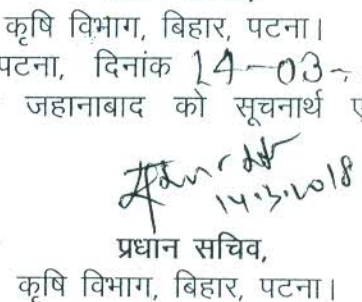 कृषि विभाग, बिहार, पटना।
पटना, दिनांक 14-03-
जहानाबाद को सूचनार्थ
14.3.2018
प्रधान सचिव,
कृषि विभाग, बिहार, पटना।